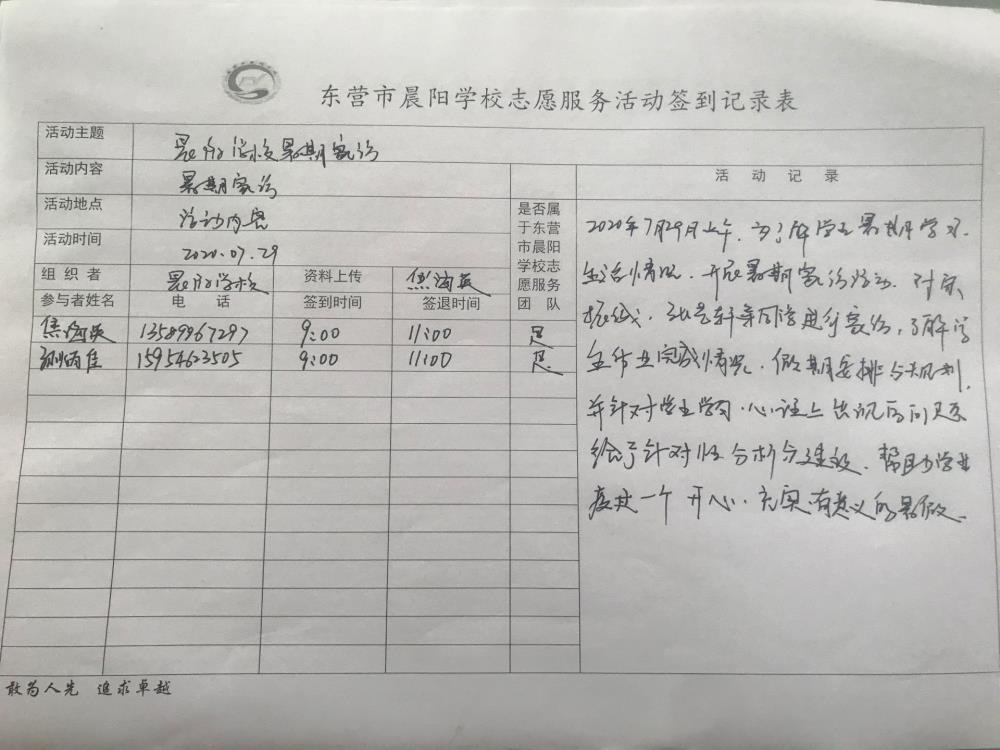 东营市晨阳学校志愿服务活动签到记录表
活动主题 晨阳学校暑期家访
活动内容 暑期家访
活动地点 活动内容
活动时间 2020.07.29
组织者 晨阳学校 资料上传 焦海英
参与者姓名 电话 签到时间 签退时间 是否属于东营市晨阳学校志愿服务团队
焦海英 13589967297 9:00 11:00 是
炳佳 15954623505 9:00 11:00 是
活动记录
2020年7月29日上午,为了解学生暑期学习、
生活情况,开展暑期家访活动。对宋
轩等同学进行家访,了解学
生作业完成情况,假期安排与规划,
并针对学生学习、心理上出现的问题
给予针对性分析与建议,帮助学生
度过一个开心、充实、有意义的暑假。
敢为人先 追求卓越